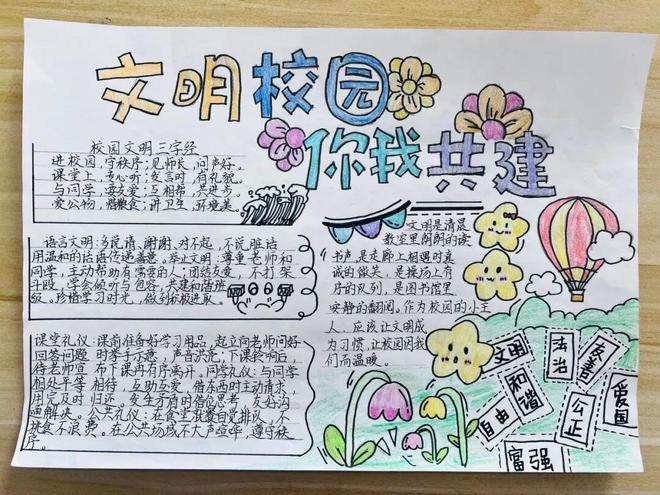 文明校园
你我共建
校园文明三字经
进校园,守秩序;见师长,问声好。
课堂上,专心听;发言时,有礼貌。
与同学,要友爱;互相帮,共进步。
爱公物,惜粮食;讲卫生,环境美。
语言文明:多说请,谢谢,对不起,不说脏话
用温和的话语传递善意。举止文明:尊重老师和
同学,主动帮助有需要的人;团结友爱,不打架
斗殴,学会倾听与包容,共建和谐班
级。珍惜学习时光,做到积极进取。
课堂礼仪:课前准备好学习用品,起立向老师问好
回答问题时举手示意,声音洪亮,下课铃响后,
待老师宣布下课再有序离开。同学礼仪:与同学
相处平等相待,互助互爱,借东西时主动请求,
用完及时归还。发生矛盾时借位思考,友好沟
通解决。公共礼仪:在食堂就餐自觉排队,不
挑食不浪费。在公共场或不大声喧哗,遵守秩
序。
文明是清晨
教室里朗朗的读
书声,是走廊上相遇时真
诚的微笑,是操场上有
序的队列,是图书馆里
安静的翻阅。作为校园的小主
人,应该让文明成
为习惯,让校园因我
们而温暖。
文明
法治
友善
和谐
自由
公正
爱国
富强